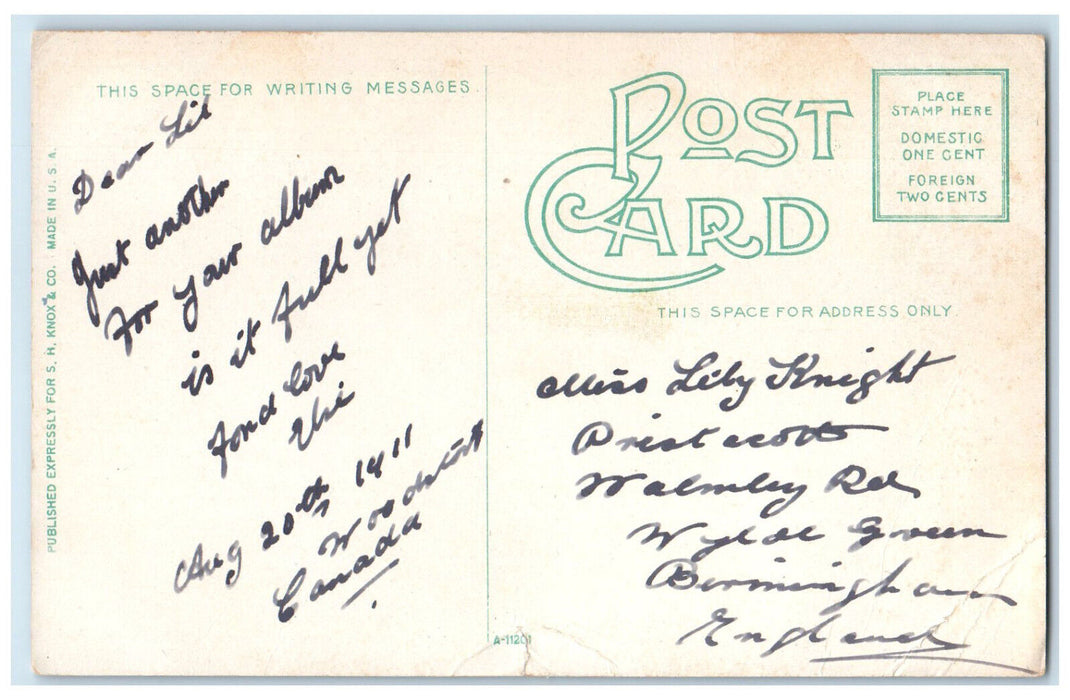 THIS SPACE FOR WRITING MESSAGES.
Dear Lil
Just another
For your album
is it full yet
Fond love
Aug 20th 1911
Woodstock
Canada
PUBLISHED EXPRESSLY FOR S. H. KNOX & CO. MADE IN U. S. A.
POST
CARD
PLACE
STAMP HERE
DOMESTIC
ONE CENT
FOREIGN
TWO CENTS
THIS SPACE FOR ADDRESS ONLY.
Miss Lily Knight
Walmley Rd
Wylde Green
Birmingham
England
A-11201